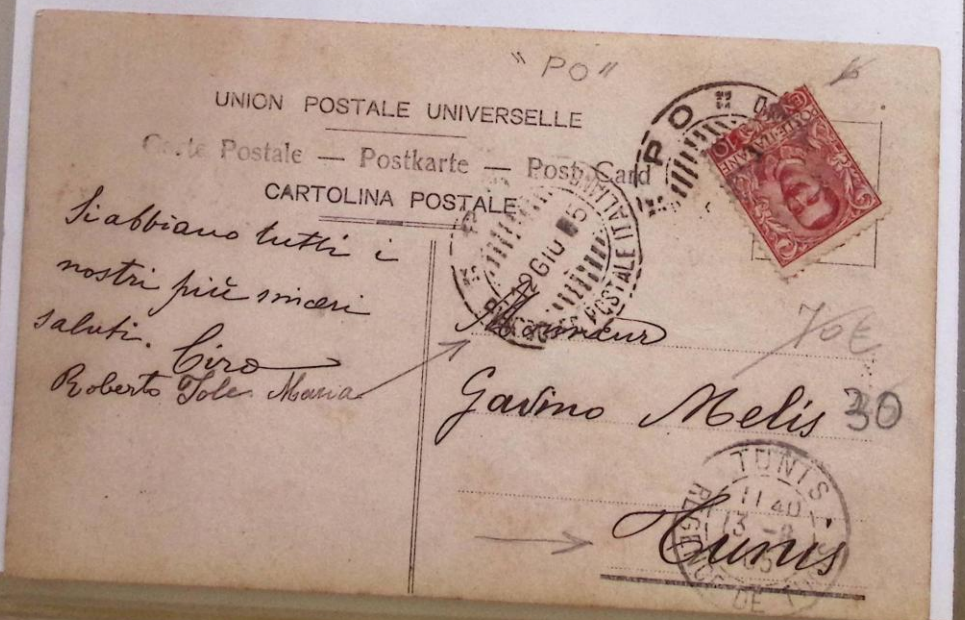 "PO"
UNION POSTALE UNIVERSELLE
Carte Postale — Postkarte — Post Card
CARTOLINA POSTALE
Si abbiano tutti i
nostri più sinceri
saluti. Ciro
Roberto Iole Maria
PO
12 GIU 5
POSTALE ITALIANO
POSTE ITALIANE
Monsieur
70€
Gavino Melis
30
Tunis
TUNIS
11 40
13 -6
05
REGENCE DE